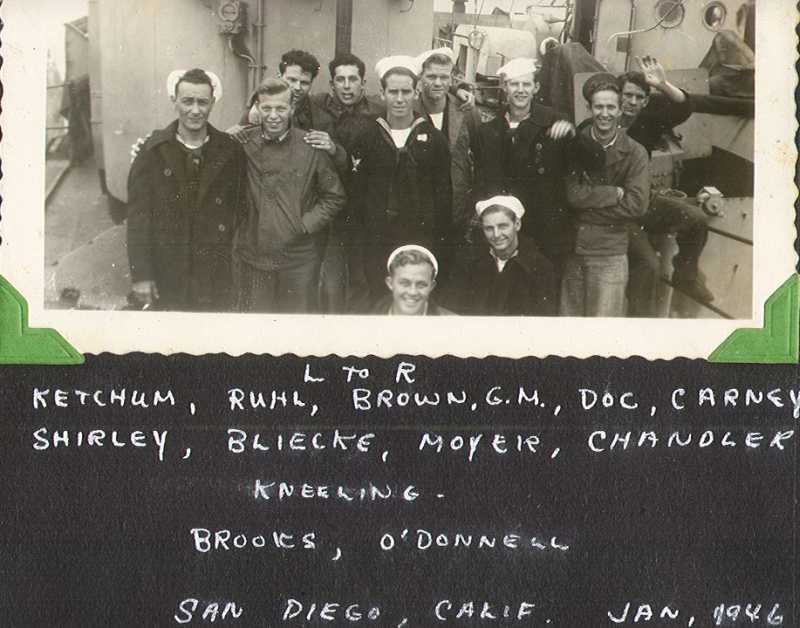 L TO R
KETCHUM, RUHL, BROWN, G.M., DOC, CARNEY
SHIRLEY, BLIECKE, MOYER, CHANDLER
KNEELING -
BROOKS, O'DONNELL
SAN DIEGO, CALIF. JAN, 1946